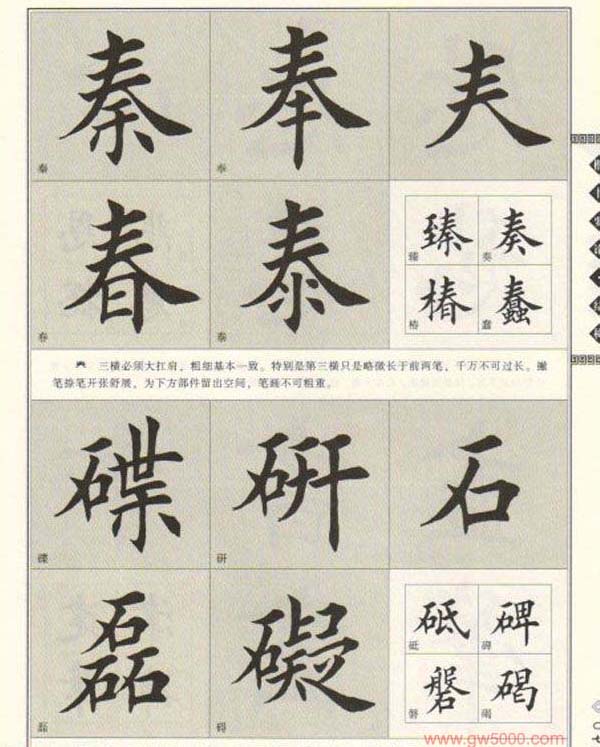 秦 奉 𡗗
秦 奉
春 泰
春 泰
臻 奏
臻 奏
椿 蠢
椿 蠢
𡗗 三横必须大扛肩，粗细基本一致。特别是第三横只是略微长于前两笔，千万不可过长。撇
笔捺笔开张舒展，为下方部件留出空间，笔画不可粗重。
碟 研 石
碟 研
磊 礙
磊 碍
砥 碑
砥 碑
磐 碣
磐 碣
www.gw5000.com